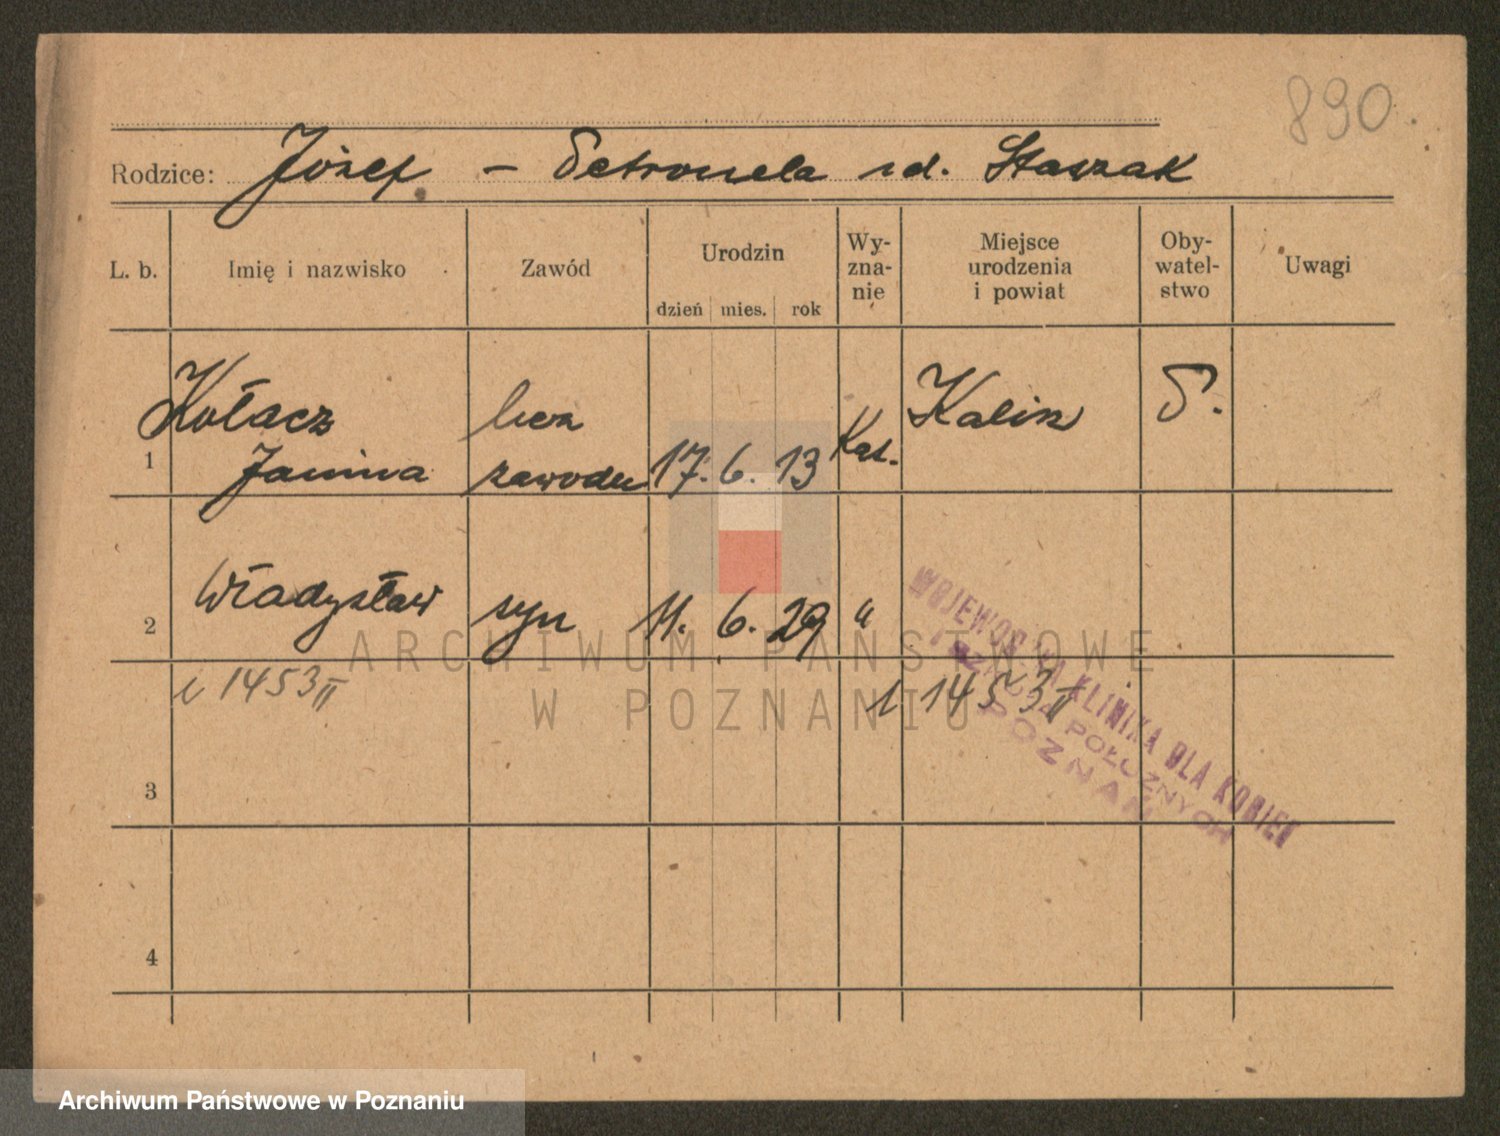 890.
Rodzice: Józef – Petronela zd. Staszak
L. b. Imię i nazwisko Zawód Urodzin dzień mies. rok Wy-zna-nie Miejsce urodzenia i powiat Oby-watel-stwo Uwagi
Kołacz bez Kalisz P.
1 Janina zawodu 17. 6. 13 Kat.
2 Władysław syn 11. 6. 29 "
1453 II 1453 II
3
4
WOJEWÓDZKA KLINIKA DLA KOBIET
POŁOŻNYCH
POZNAŃ
ARCHIWUM PAŃSTWOWE
W POZNANIU
Archiwum Państwowe w Poznaniu